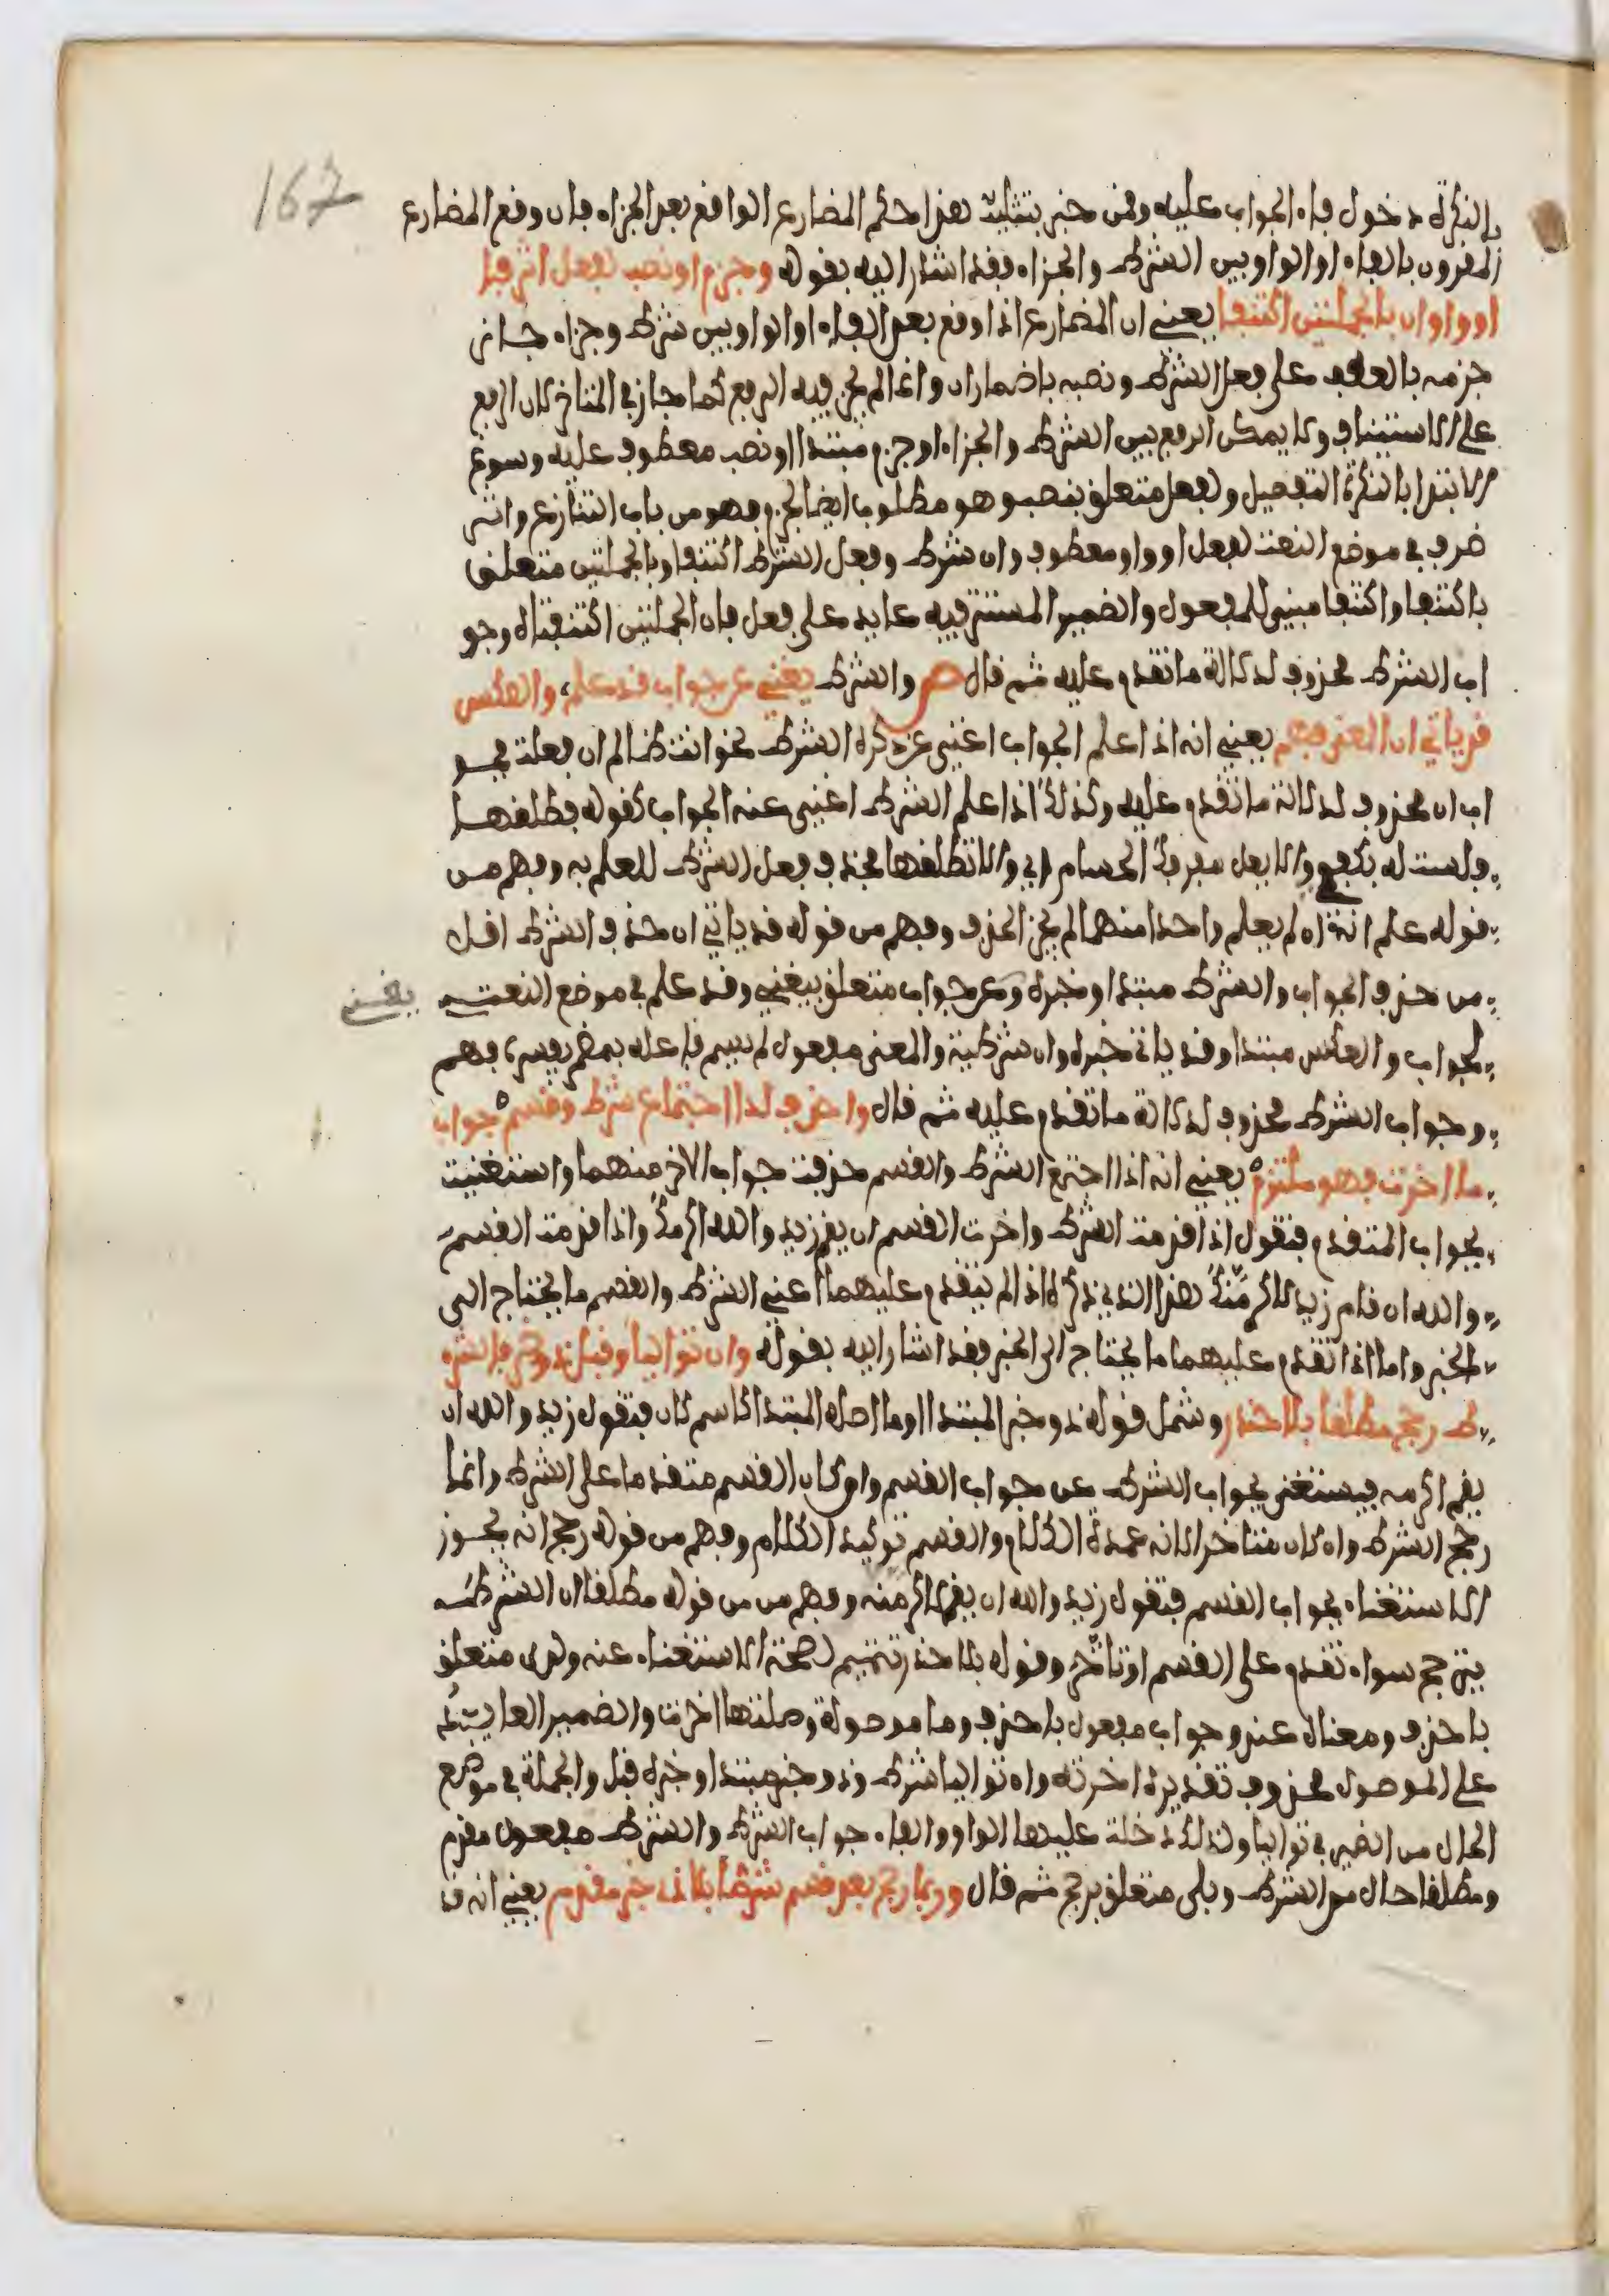 167
بالنكرة دخول فاء الجواب عليه وقمن خبر بتثليث هذا حكم المضارع الواقع بعد الجزاء فان وقع المضارع
المقرون بالفاء او الواو بين الشرط والجزاء فقد اشار اليه بقوله وجزم او نصب لفعل اثر فا
او واو ان بالجملتين اكتنفا يعني ان المضارع اذا وقع بعد الفاء او الواو بين شرط وجزاء جاز
جزمه بالعطف على فعل الشرط ونصبه باضمار ان وانما لم يجز فيه الرفع كما جاز في المتاخر لان الرفع
على الاستيناف ولا يمكن الرفع بين الشرط والجزاء وجزم مبتدا او نصب معطوف عليه وسوغ
الابتدا بالنكرة التفصيل ولفعل متعلق بنصب وهو مطلوب ايضا لجزم فهو من باب التنازع واثر
ظرف في موضع النعت لفعل او واو معطوف وان شرط وفعل الشرط اكتنفا وبالجملتين متعلق
باكتنفا واكتنفا مبني للمفعول والضمير المستتر فيه عايد على فعل فان الجملتين اكتنفتاه وجو
اب الشرط محذوف لدلالة ما تقدم عليه ثم قال ص والشرط يغني عن جواب قد علم، والعكس
قد ياتي ان المعنى فهم يعني انه اذا علم الجواب اغنى عن ذكره الشرط نحو انت ظالم ان فعلت فجو
اب ان محذوف لدلالة ما تقدم عليه وكذلك اذا علم الشرط اغنى عنه الجواب كقوله فطلقها
فلست لها بكفو والا يعل مفرقك الحسام اي والا تطلقها فحذف فعل الشرط للعلم به وفهم من
قوله علم انه ان لم يعلم واحدا منهما لم يجز الحذف وفهم من قوله قد ياتي ان حذف الشرط اقل
من حذف الجواب والشرط مبتدا وخبره وعن جواب متعلق بيغني وقد علم في موضع النعت
يغني
لجواب والعكس مبتدا وقد ياتي خبره وان شرطية والمعنى مفعول لم يسم فاعله بمضمر يفسره فهم
وجواب الشرط محذوف لدلالة ما تقدم عليه ثم قال واحذف لدا اجتماع شرط وقسم جواب
ما اخرت فهو ملتزم يعني انه اذا اجتمع الشرط والقسم حذفت جواب الاخر منهما واستغنيت
بجواب المتقدم فتقول اذا قدمت الشرط واخرت القسم ان يقم زيد والله اكرمك واذا قدمت القسم
والله ان قام زيد لاكرمنك هذا الذي ذكره اذا لم يتقدم عليهما اعني الشرط والقسم ما يحتاج الى
الخبر واما اذا تقدم عليهما ما يحتاج الى الخبر فقد اشار اليه بقوله وان تواليا وقبل ذو خبر فالشر
ط رجح مطلقا بلا حذر وشمل قوله ذو خبر المبتدا وما اصله المبتدا كاسم كان فتقول زيد والله ان
يقم اكرمه فيستغنى بجواب الشرط عن جواب القسم وان كان القسم متقدما على الشرط وانما
رجح الشرط وان كان متاخرا لانه عمدة الكلام والقسم توكيد الكلام وفهم من قوله رجح انه يجوز
الاستغناء بجواب القسم فتقول زيد والله ان يقم لاكرمنه وفهم من من قوله مطلقا ان الشرط
يترجح سواء تقدم على القسم او تاخر وقوله بلا حذر تتميم لصحة الاستغناء عنه ولدى متعلق
باحذف ومعناه عند وجواب مفعول باحذف وما موصولة وصلتها اخرت والضمير العايد
على الموصول محذوف تقديره اخرته وان تواليا شرط وذو خبر مبتدا وخبره قبل والجملة في موضع
الحال من الضمير في تواليا ولذلك دخلت عليها الواو والفاء جواب الشرط والشرط مفعول مقدم
ومطلقا حال من الشرط وبلى متعلق برجح ثم قال وربما رجح بعد قسم شرط بلا ذي خبر مقدم يعني انه قد